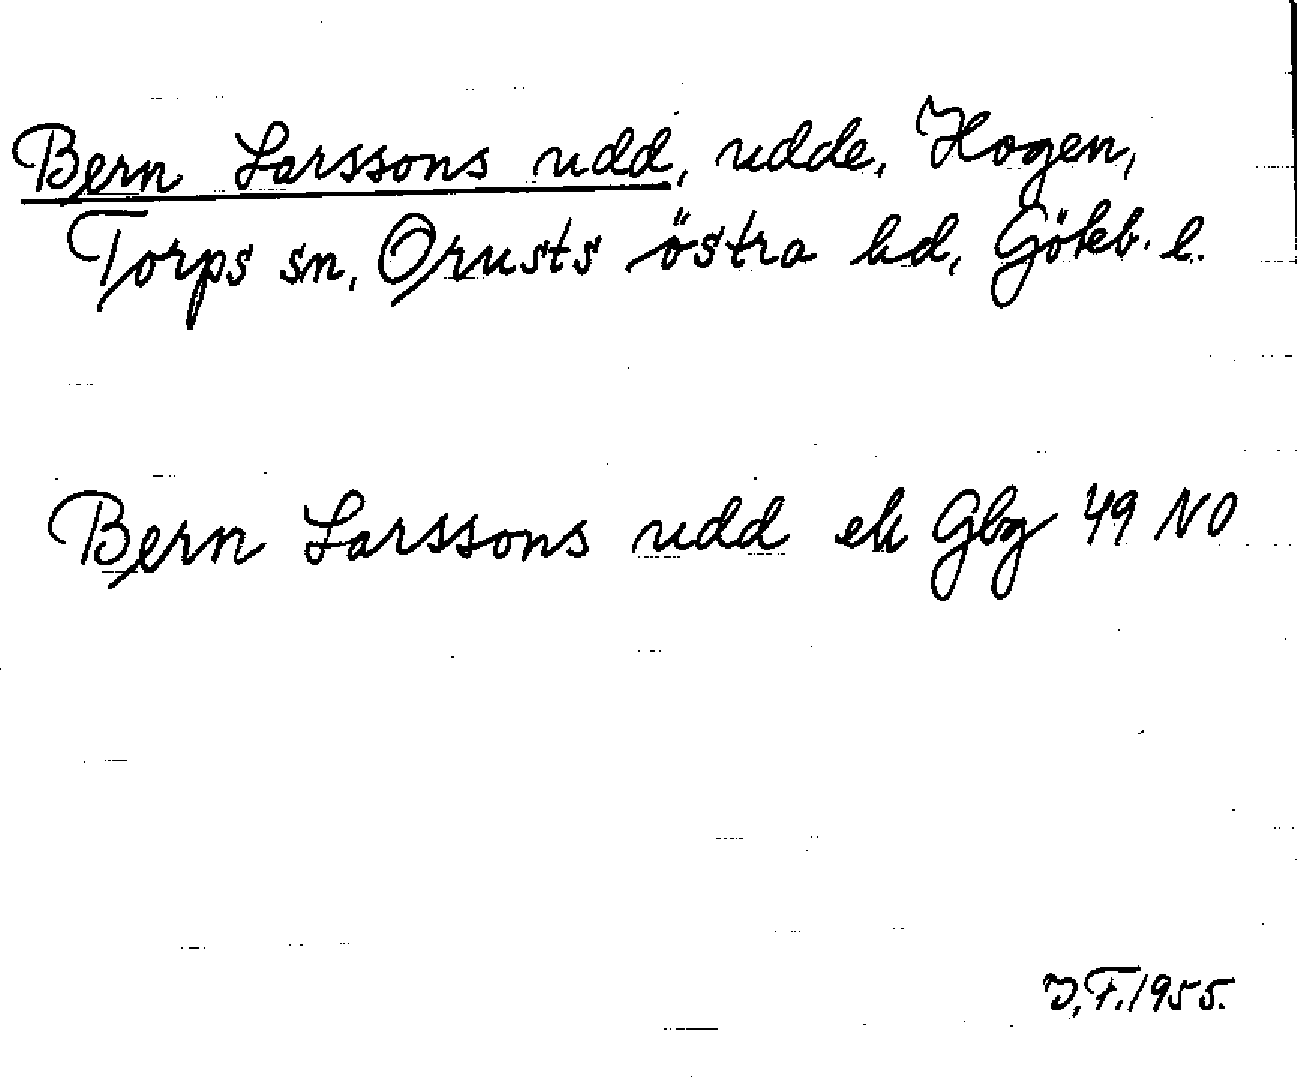 Bern Larssons udd, udde, Hogen,
Torps sn, Orusts östra hd, Götebb. l.
Bern Larssons udd ek Gbg 49 NO
J.F. 1955.